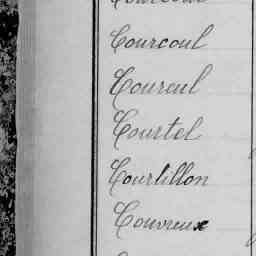 Courcoul
Coureul
Courtel
Courtillon
Couvreux